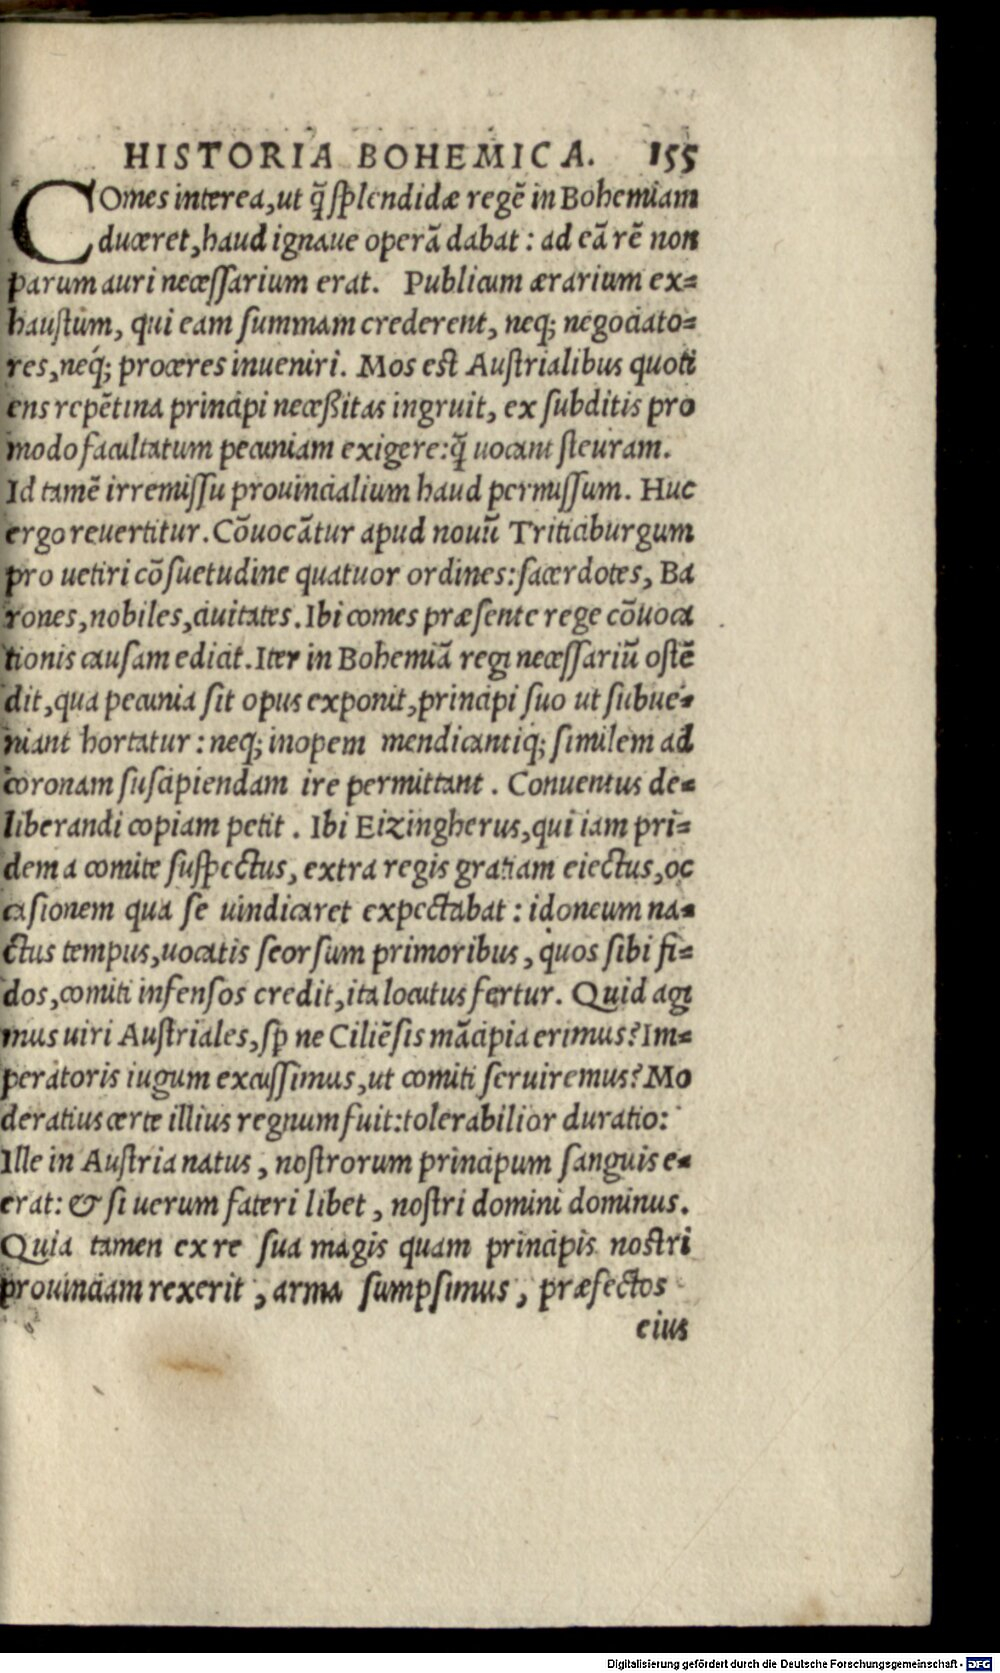 HISTORIA BOHEMICA. 155
COmes interea, ut q̃ ſplendidæ regẽ in Bohemiam
duceret, haud ignaue operã dabat: ad eã rẽ non
parum auri neceſſarium erat. Publicum ærarium ex=
hauſtum, qui eam ſummam crederent, neq; negociato=
res, neq́; proceres inueniri. Mos est Auſtrialibus quoti
ens repẽtina principi neceßitas ingruit, ex ſubditis pro
modo facultatum pecuniam exigere: q̃ uocant ſteuram.
Id tamẽ irremiſſu prouincialium haud permiſſum. Huc
ergo reuertitur. Cõuocãtur apud nouũ Triticiburgum
pro uetiri cõſuetudine quatuor ordines: ſacerdotes, Ba
rones, nobiles, ciuitates. Ibi comes præſente rege cõuoca
tionis cauſam edicit. Iter in Bohemiã regi neceſſariũ oſtẽ
dit, qua pecunia ſit opus exponit, principi ſuo ut ſubue=
niant hortatur: neq; inopem mendicantiq́; ſimilem ad
coronam ſuſcipiendam ire permittant. Conuentus de=
liberandi copiam petit. Ibi Eizingherus, qui iam pri=
dem a comite ſuſpectus, extra regis gratiam eiectus, oc
caſionem qua ſe uindicaret expectabat: idoneum na=
ctus tempus, uocatis ſeorſum primoribus, quos ſibi fi=
dos, comiti infenſos credit, ita locutus fertur. Quid agi
mus uiri Auſtriales, ſp̱ ne Ciliẽſis mãcipia erimus? Im=
peratoris iugum excuſſimus, ut comiti ſeruiremus? Mo
deratius certe illius regnum fuit: tolerabilior duratio:
Ille in Auſtria natus, noſtrorum principum ſanguis e=
erat: & ſi uerum fateri libet, noſtri domini dominus.
Quia tamen ex re ſua magis quam principis noſtri
prouinciam rexerit, arma ſumpſimus, præfectos
eius
Digitalisierung gefördert durch die Deutsche Forschungsgemeinschaft - DFG